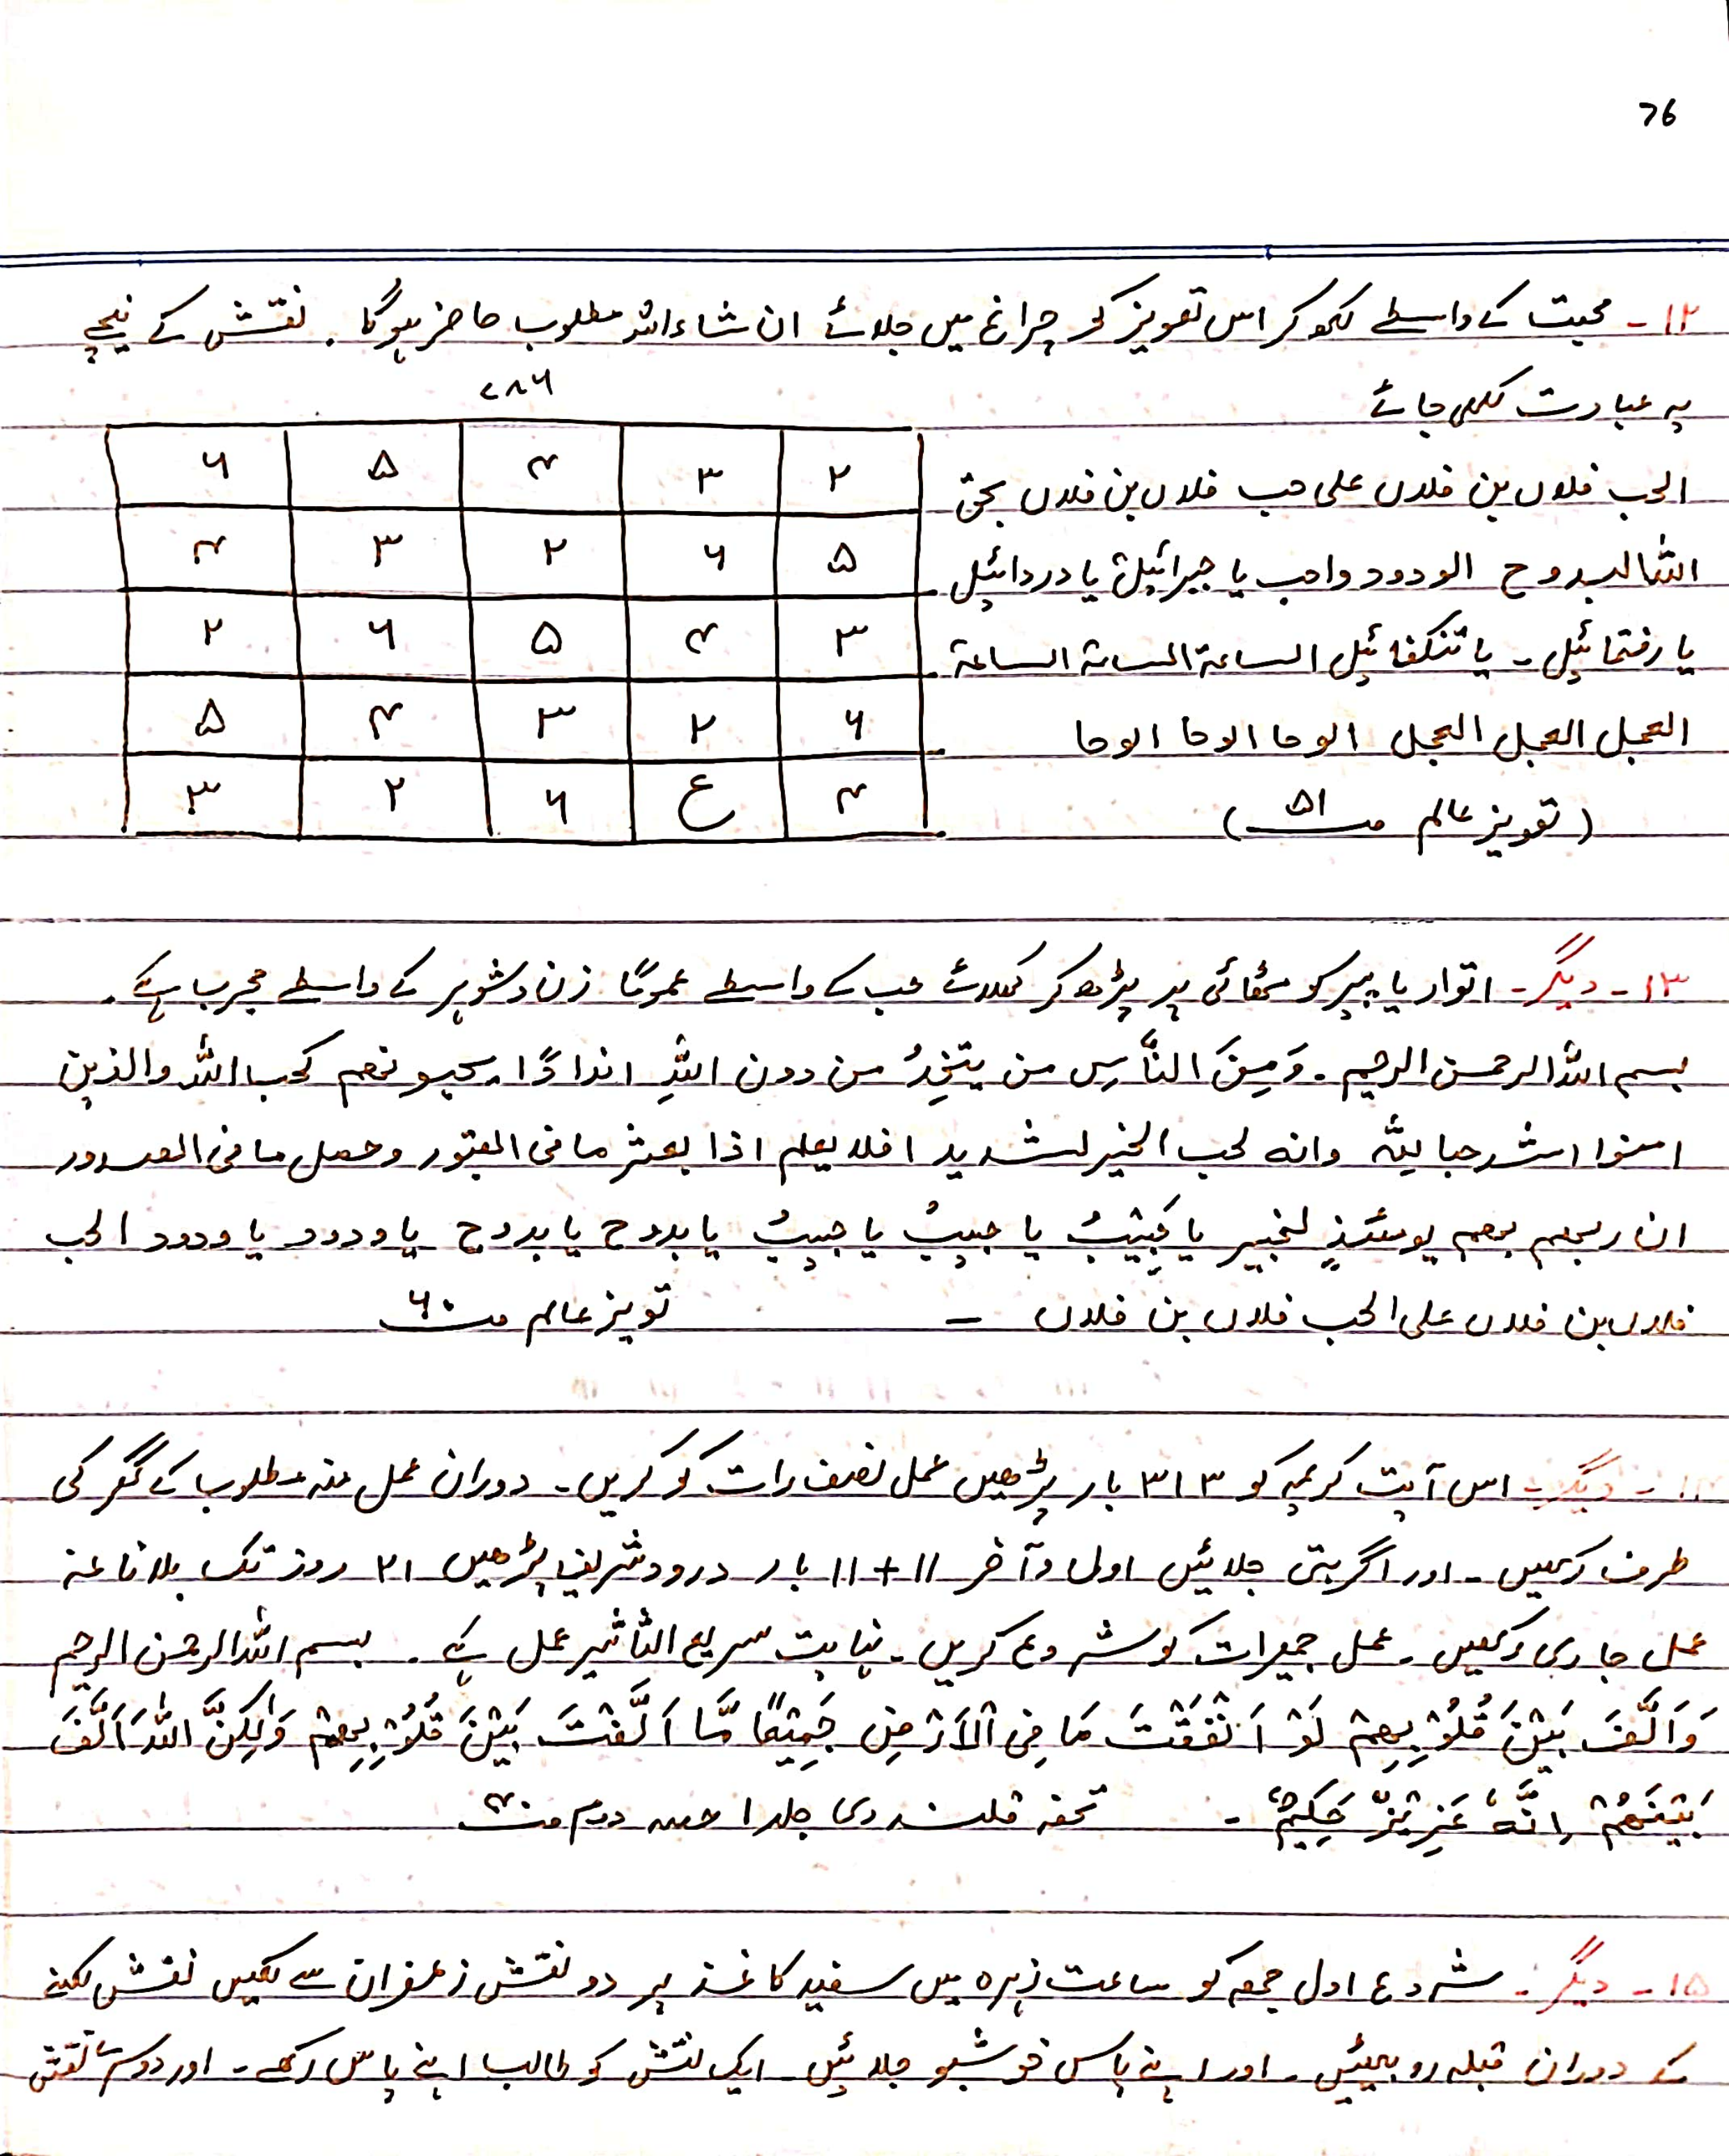 76
۱۲۔ محبت کے واسطے لکھ کر اس تعویز کو چراغ میں جلائے ان شاءاللہ مطلوب حاضر ہوگا۔ نقش کے نیچے
یہ عبارت لکھی جائے
۷۸۶
الحب فلاں بن فلاں علی حب فلاں بن فلاں بحق
اللہ البدوح الودود واحب یا جبرائیل یا دردائیل
یا رفتمائیل۔ یا تنکفائیل الساعة الساعة الساعة
العجل العجل العجل الوحا الوحا الوحا
(تعویز عالم صـ ۵۱)
۲ ۳ ۴ ۵ ۶
۵ ۶ ۲ ۳ ۴
۳ ۴ ۵ ۶ ۲
۶ ۲ ۳ ۴ ۵
۴ ع ۶ ۲ ۳
۱۳۔ دیگر۔ اتوار یا پیر کو مٹھائی پر پڑھ کر کھلائے حب کے واسطے عموماً زن و شوہر کے واسطے مجرب ہے۔
بسم اللہ الرحمن الرحیم۔ وَمِنَ النَّاسِ من یتخِذُ من دون اللہِ انداداً یحبونھم کحب اللہ والذین
امنوا اشد حبا للہ وانه لحب الخیر لشدید افلا یعلم اذا بعثر ما فی القبور وحصل ما فی الصدور
ان ربھم بھم یومئذٍ لخبیر یا حَبِیْبُ یا حبیبُ یا حبیبُ یا بدوح یا بدوح یا ودود یا ودود الحب
فلاں بن فلاں علی الحب فلاں بن فلاں ۔ تویز عالم صـ ۶۰
۱۴۔ دیگر۔ اس آیت کریمہ کو ۳۱۳ بار پڑھیں عمل نصف رات کو کریں۔ دوران عمل منہ مطلوب کے گھر کی
طرف رکھیں۔ اور اگربتی جلائیں اول و آخر ۱۱+۱۱ بار درود شریف پڑھیں ۲۱ روز تک بلا ناغہ
عمل جاری رکھیں۔ عمل جمعرات کو شروع کریں۔ نہایت سریع التاثیر عمل ہے۔ بسم اللہ الرحمن الرحیم
وَاَلَّفَ بَیْنَ قُلُوْبِھِمْ لَوْ اَنْفَقْتَ مَا فِی الْاَرْضِ جَمِیْعًا مَّا اَلَّفْتَ بَیْنَ قُلُوْبِھِمْ وَلٰکِنَّ اللہَ اَلَّفَ
بَیْنَھُمْ اِنَّهٗ عَزِیْزٌ حَکِیْمٌ ۔ تحفہ قلندری جلد ۱ حصہ دوم صـ
۱۵۔ دیگر۔ شروع اول جمعہ کو ساعت زہرہ میں سفید کاغذ پر دو نقش زعفران سے لکھیں نقش لکھنے
کے دوران قبلہ رو بیٹھیں۔ اور اپنے پاس خوشبو جلائیں ایک نقش کو طالب اپنے پاس رکھے۔ اور دوسرے نقش